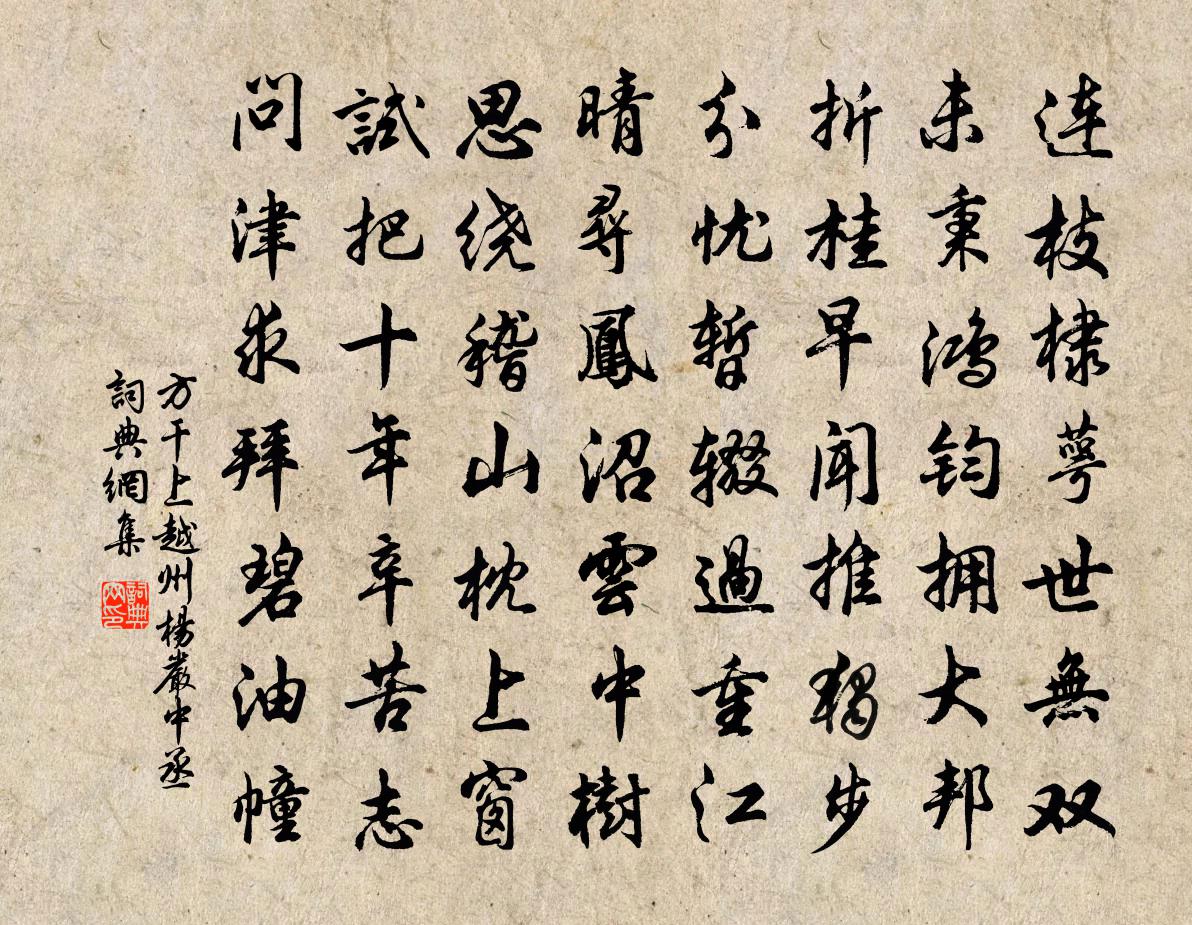 连枝棣萼世無双
未秉鸿钧拥大邦
折桂早闻推独步
分忧暂辍過重江
晴尋鳳沼雲中樹
思绕稽山枕上窗
試把十年辛苦志
问津求拜碧油幢
方干上越州楊嚴中丞
詞典網集
詞典网印